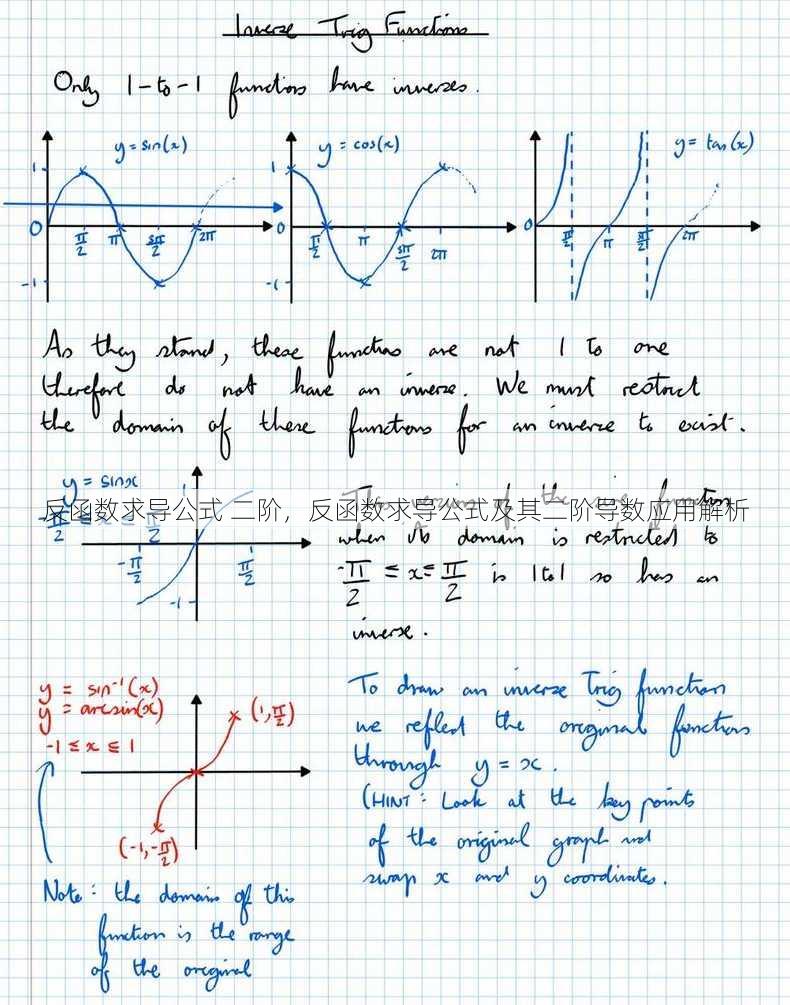 Inverse Trig Functions
Only 1-to-1 functions have inverses.
y = sin(x)
1
0
π/2
π
3π/2
2π
-1
y = cos(x)
1
0
π/2
π
3π/2
2π
-1
y = tan(x)
0
π/2
π
3π/2
2π
As they stand, these functions are not 1 to one
therefore do not have an inverse. We must restrict
the domain of these functions for an inverse to exist.
y = sinx
-π/2 ≤ x ≤ π/2
1
-π/2
π/2
-1
反函数求导公式 二阶，反函数求导公式及其二阶导数应用解析
This version of the sine function
when its domain is restricted to
-π/2 ≤ x ≤ π/2 is 1to1 so has an
inverse.
y = sin⁻¹(x)
y = arcsin(x)
-1 ≤ x ≤ 1
(1, π/2)
(-1, -π/2)
To draw an inverse Trig function
we reflect the original function
through y = x.
(HINT: Look at the key points
of the original graph and
swap x and y coordinates.
Note: the domain of this
function is the range
of the original